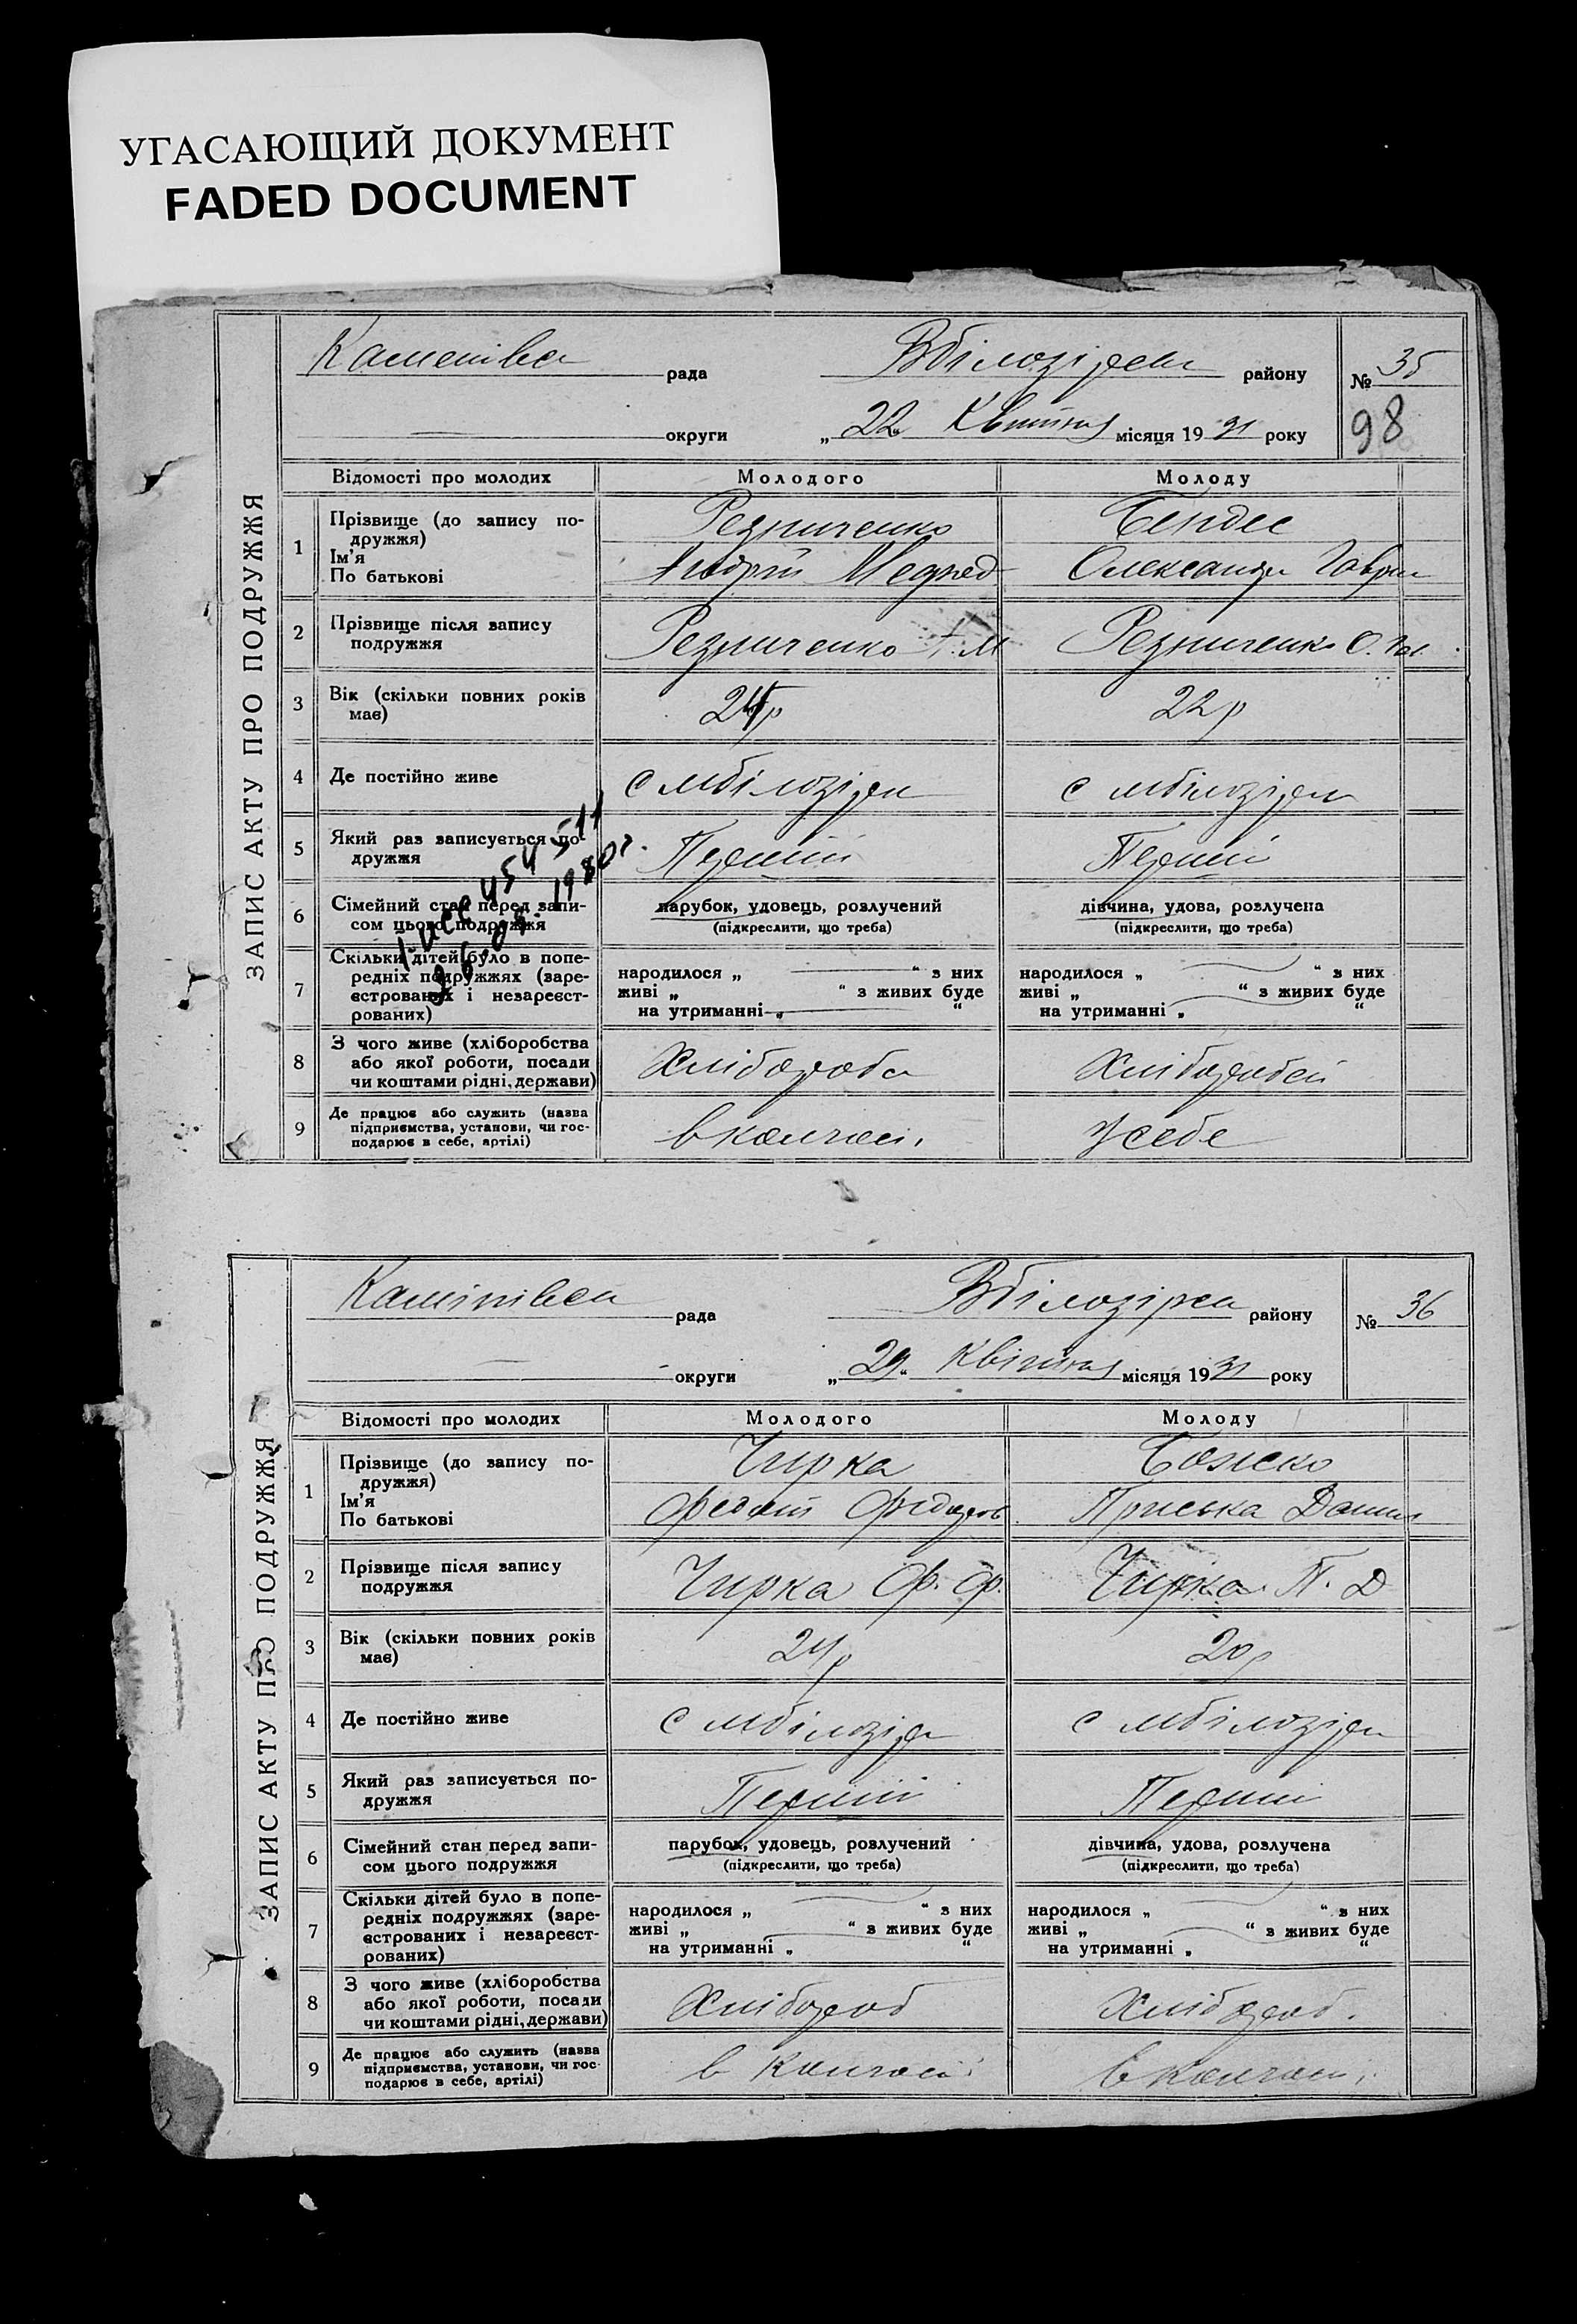 УГАСАЮЩИЙ ДОКУМЕНТ
FADED DOCUMENT
ЗАПИС АКТУ ПРО ПОДРУЖЖЯ
рада Вбілозірськ району № 35
округи „ 22 “ Квітня місяця 19 31 року 98
Відомості про молодих Молодого Молоду
1 Прізвище (до запису по-
дружжя) Резниченко
Ім'я
По батькові Андрій Олександра Гаврил
2 Прізвище після запису
подружжя Резниченко А. М Резниченко О. Гав.
3 Вік (скільки повних років
має) р 22 р
4 Де постійно живе с мбілозірк с мбілозірк
5 Який раз записується по-
дружжя Перший Перший
6 Сімейний стан перед запи-
сом цього подружжя парубок, удовець, розлучений дівчина, удова, розлучена
(підкреслити, що треба) (підкреслити, що треба)
7 Скільки дітей було в попе-
редніх подружжях (заре-
єстрованих і незареєст-
рованих)
народилося „ “ з них народилося „ “ з них
живі „ “ з живих буде живі „ “ з живих буде
на утриманні „ “ на утриманні „ “
8 З чого живе (хліборобства
або якої роботи, посади
чи коштами рідні, держави) Хлібороба
9 Де працює або служить (назва
підприємства, установи, чи гос-
подарює в себе, артілі) У себе
454511
1980 г.
ЗАПИС АКТУ ПРО ПОДРУЖЖЯ
рада Вбілозірськ району № 36
округи „ 29 “ Квітня місяця 19 31 року
Відомості про молодих Молодого Молоду
1 Прізвище (до запису по-
дружжя) Чирка Божко
Ім'я
По батькові Федот Федоров Приська Данил
2 Прізвище після запису
подружжя Чирка Ф. Ф. Чирка П. Д
3 Вік (скільки повних років
має) 24 р 20 р
4 Де постійно живе с мбілозірк с мбілозірк
5 Який раз записується по-
дружжя Перший Перший
6 Сімейний стан перед запи-
сом цього подружжя парубок, удовець, розлучений дівчина, удова, розлучена
(підкреслити, що треба) (підкреслити, що треба)
7 Скільки дітей було в попе-
редніх подружжях (заре-
єстрованих і незареєст-
рованих)
народилося „ “ з них народилося „ “ з них
живі „ “ з живих буде живі „ “ з живих буде
на утриманні „ “ на утриманні „ “
8 З чого живе (хліборобства
або якої роботи, посади
чи коштами рідні, держави) Хлібороб Хлібороб.
9 Де працює або служить (назва
підприємства, установи, чи гос-
подарює в себе, артілі)